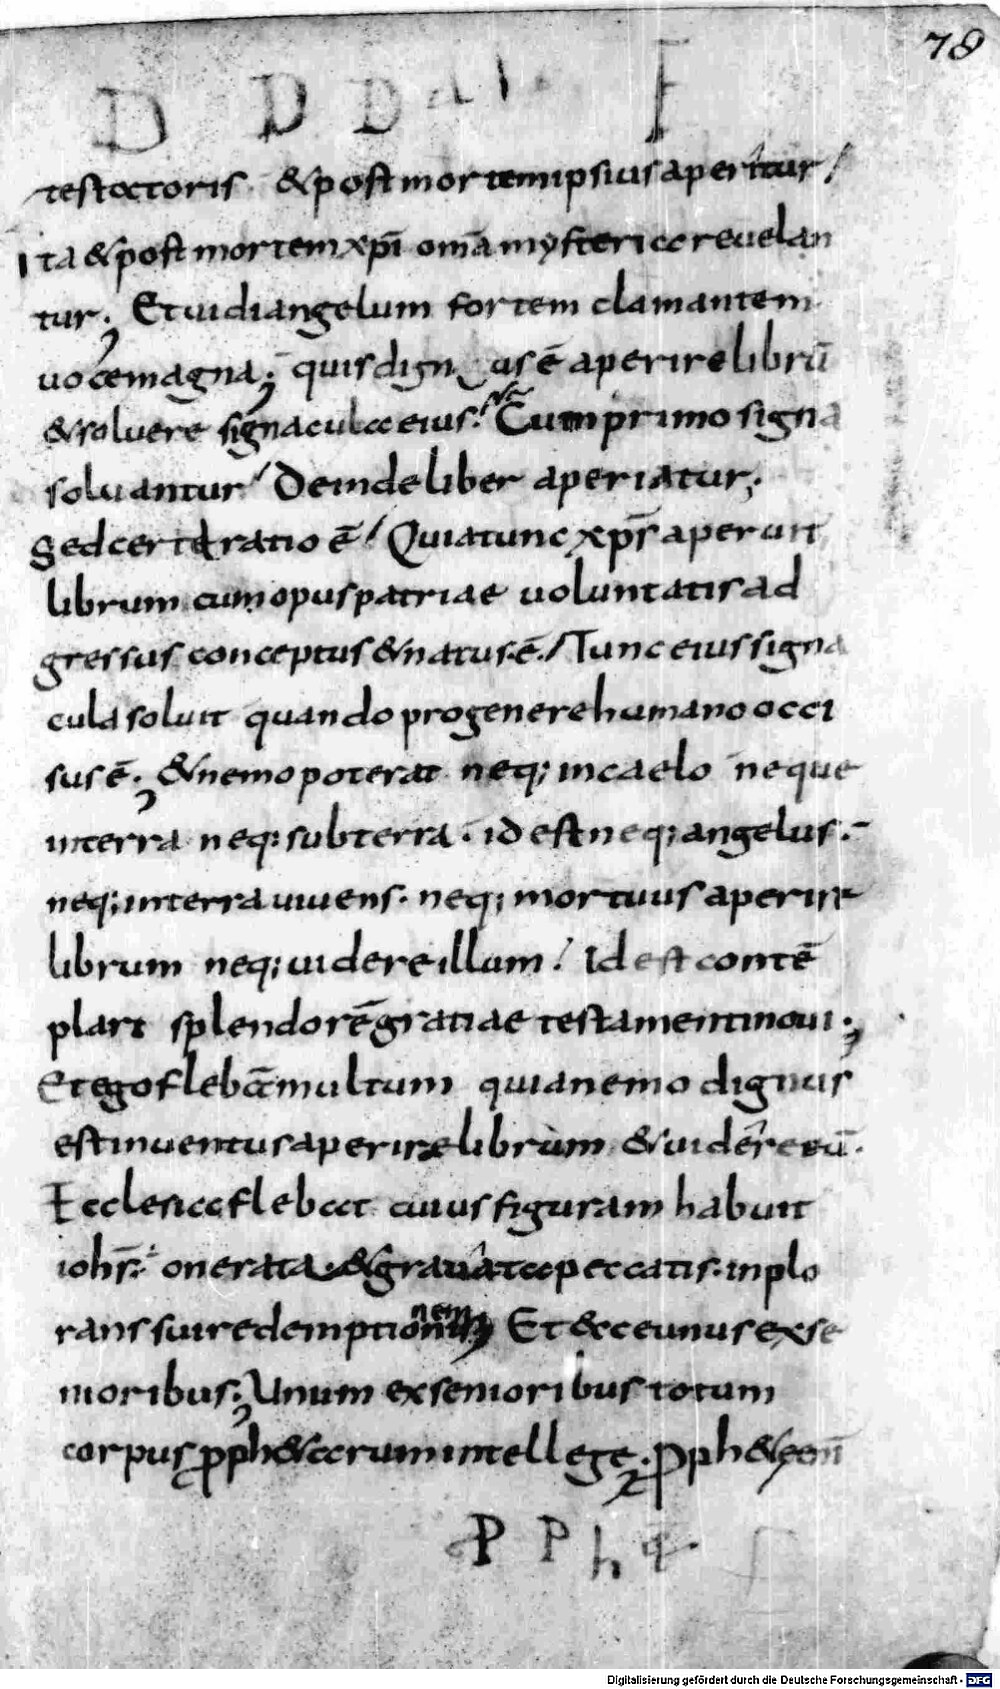 78
D D D F
testatoris &post mortem ipsius aperitur
Ita &post mortem xpi om̄a mysteria reuelan
tur; Et uidi angelum fortem clamantem
uoce magna; quis dignus ē aperire librū
&soluere signacula eius. Cum primo signa
soluantur Deinde liber aperiatur;
Sed certe ratio ē Quia tunc xp̄s aperuit
librum cum opus patriae uoluntatis ad
gressus conceptus &natus ē. Tunc eius signa
cula soluit quando pro genere humano occi
sus ē; &nemo poterat neq; in caelo neque
in terra neq; sub terra. id est neq; angelus.
neq; in terra uiuens. neq; mortuus aperire
librum neq; uidere illum. Id est contē
plari splendorē gratiae testamenti noui;
Et ego flebā multum quia nemo dignus
est inuentus aperire librum &uidere eū.
Ecclesia flebat cuius figuram habuit
iohs̄. onerata &grauata peccatis. inplo
rans sui redemptionem Et ecce unus ex se
nioribus; Unum ex senioribus totum
corpus pph&arum intellege. Pph&
P P h